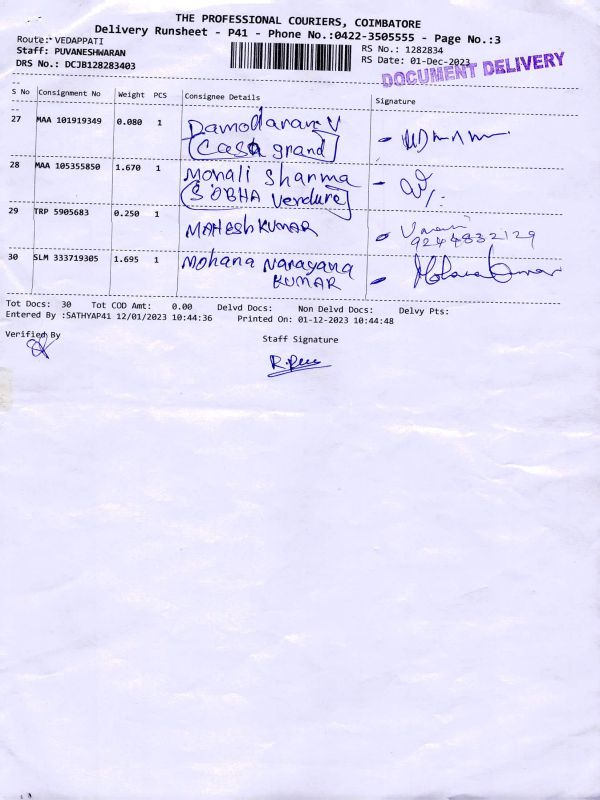 THE PROFESSIONAL COURIERS, COIMBATORE
Delivery Runsheet - P41 - Phone No.:0422-3505555 - Page No.:3
Route: VEDAPPATI RS No.: 1282834
Staff: PUVANESHWARAN RS Date: 01-Dec-2023
DRS No.: DCJB128283403 DOCUMENT DELIVERY
S No Consignment No Weight PCS Consignee Details Signature
27 MAA 101919349 0.080 1 Damodaram V
Casa grand
28 MAA 105355850 1.670 1 Monali Sharma
SOBHA Verdure
29 TRP 5905683 0.250 1 MAHESH KUMAR
9244832129
30 SLM 333719305 1.695 1 Mohana Narayana
KUMAR
Tot Docs: 30 Tot COD Amt: 0.00 Delvd Docs: Non Delvd Docs: Delvy Pts:
Entered By :SATHYAP41 12/01/2023 10:44:36 Printed On: 01-12-2023 10:44:48
Verified By Staff Signature